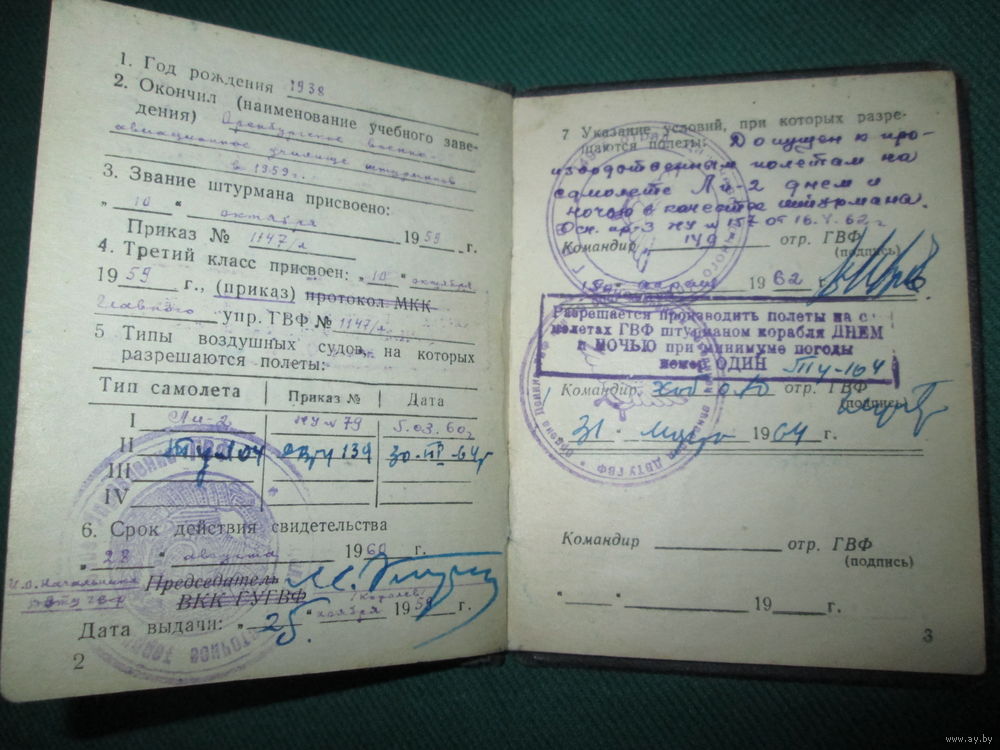 1. Год рождения 1938
2. Окончил (наименование учебного заве-
дения) Оренбургское военно-
авиационное училище штурманов
в 1959 г.
3. Звание штурмана присвоено:
„ 10 “ октября 1959 г.
Приказ № 1147/л
4. Третий класс присвоен: „ 10 “ октября
1959 г., (приказ) протокол МКК
Главного упр. ГВФ № 1147/л.
5 Типы воздушных судов, на которых
разрешаются полеты:
Тип самолета Приказ № Дата
I Ли-2 79 5.03.60г
II Ту-104 134 30-III-64г
III
IV
6. Срок действия свидетельства
„ 28 “ августа 1960 г.
И.о. Начальника Председатель
ВКК ГУГВФ
Дата выдачи: „ 25 “ ноября 1959 г.
2
7 Указание условий, при которых разре-
шаются полеты: Допущен к про-
изводственным полетам на
самолете Ли-2 днем и
ночью в качестве штурмана.
Осн. пр-з № 157 от 16.V.62г
Командир 149 отр. ГВФ
(подпись)
1962 г.
Разрешается производить полеты на с
молетах ГВФ штурманом корабля ДНЕМ
и НОЧЬЮ при минимуме погоды
номер ОДИН Ту-104
Командир отр. ГВФ
(подпись)
31 марта 1964 г.
Командир отр. ГВФ
(подпись)
„ “ 19 г.
3
www.ay.by